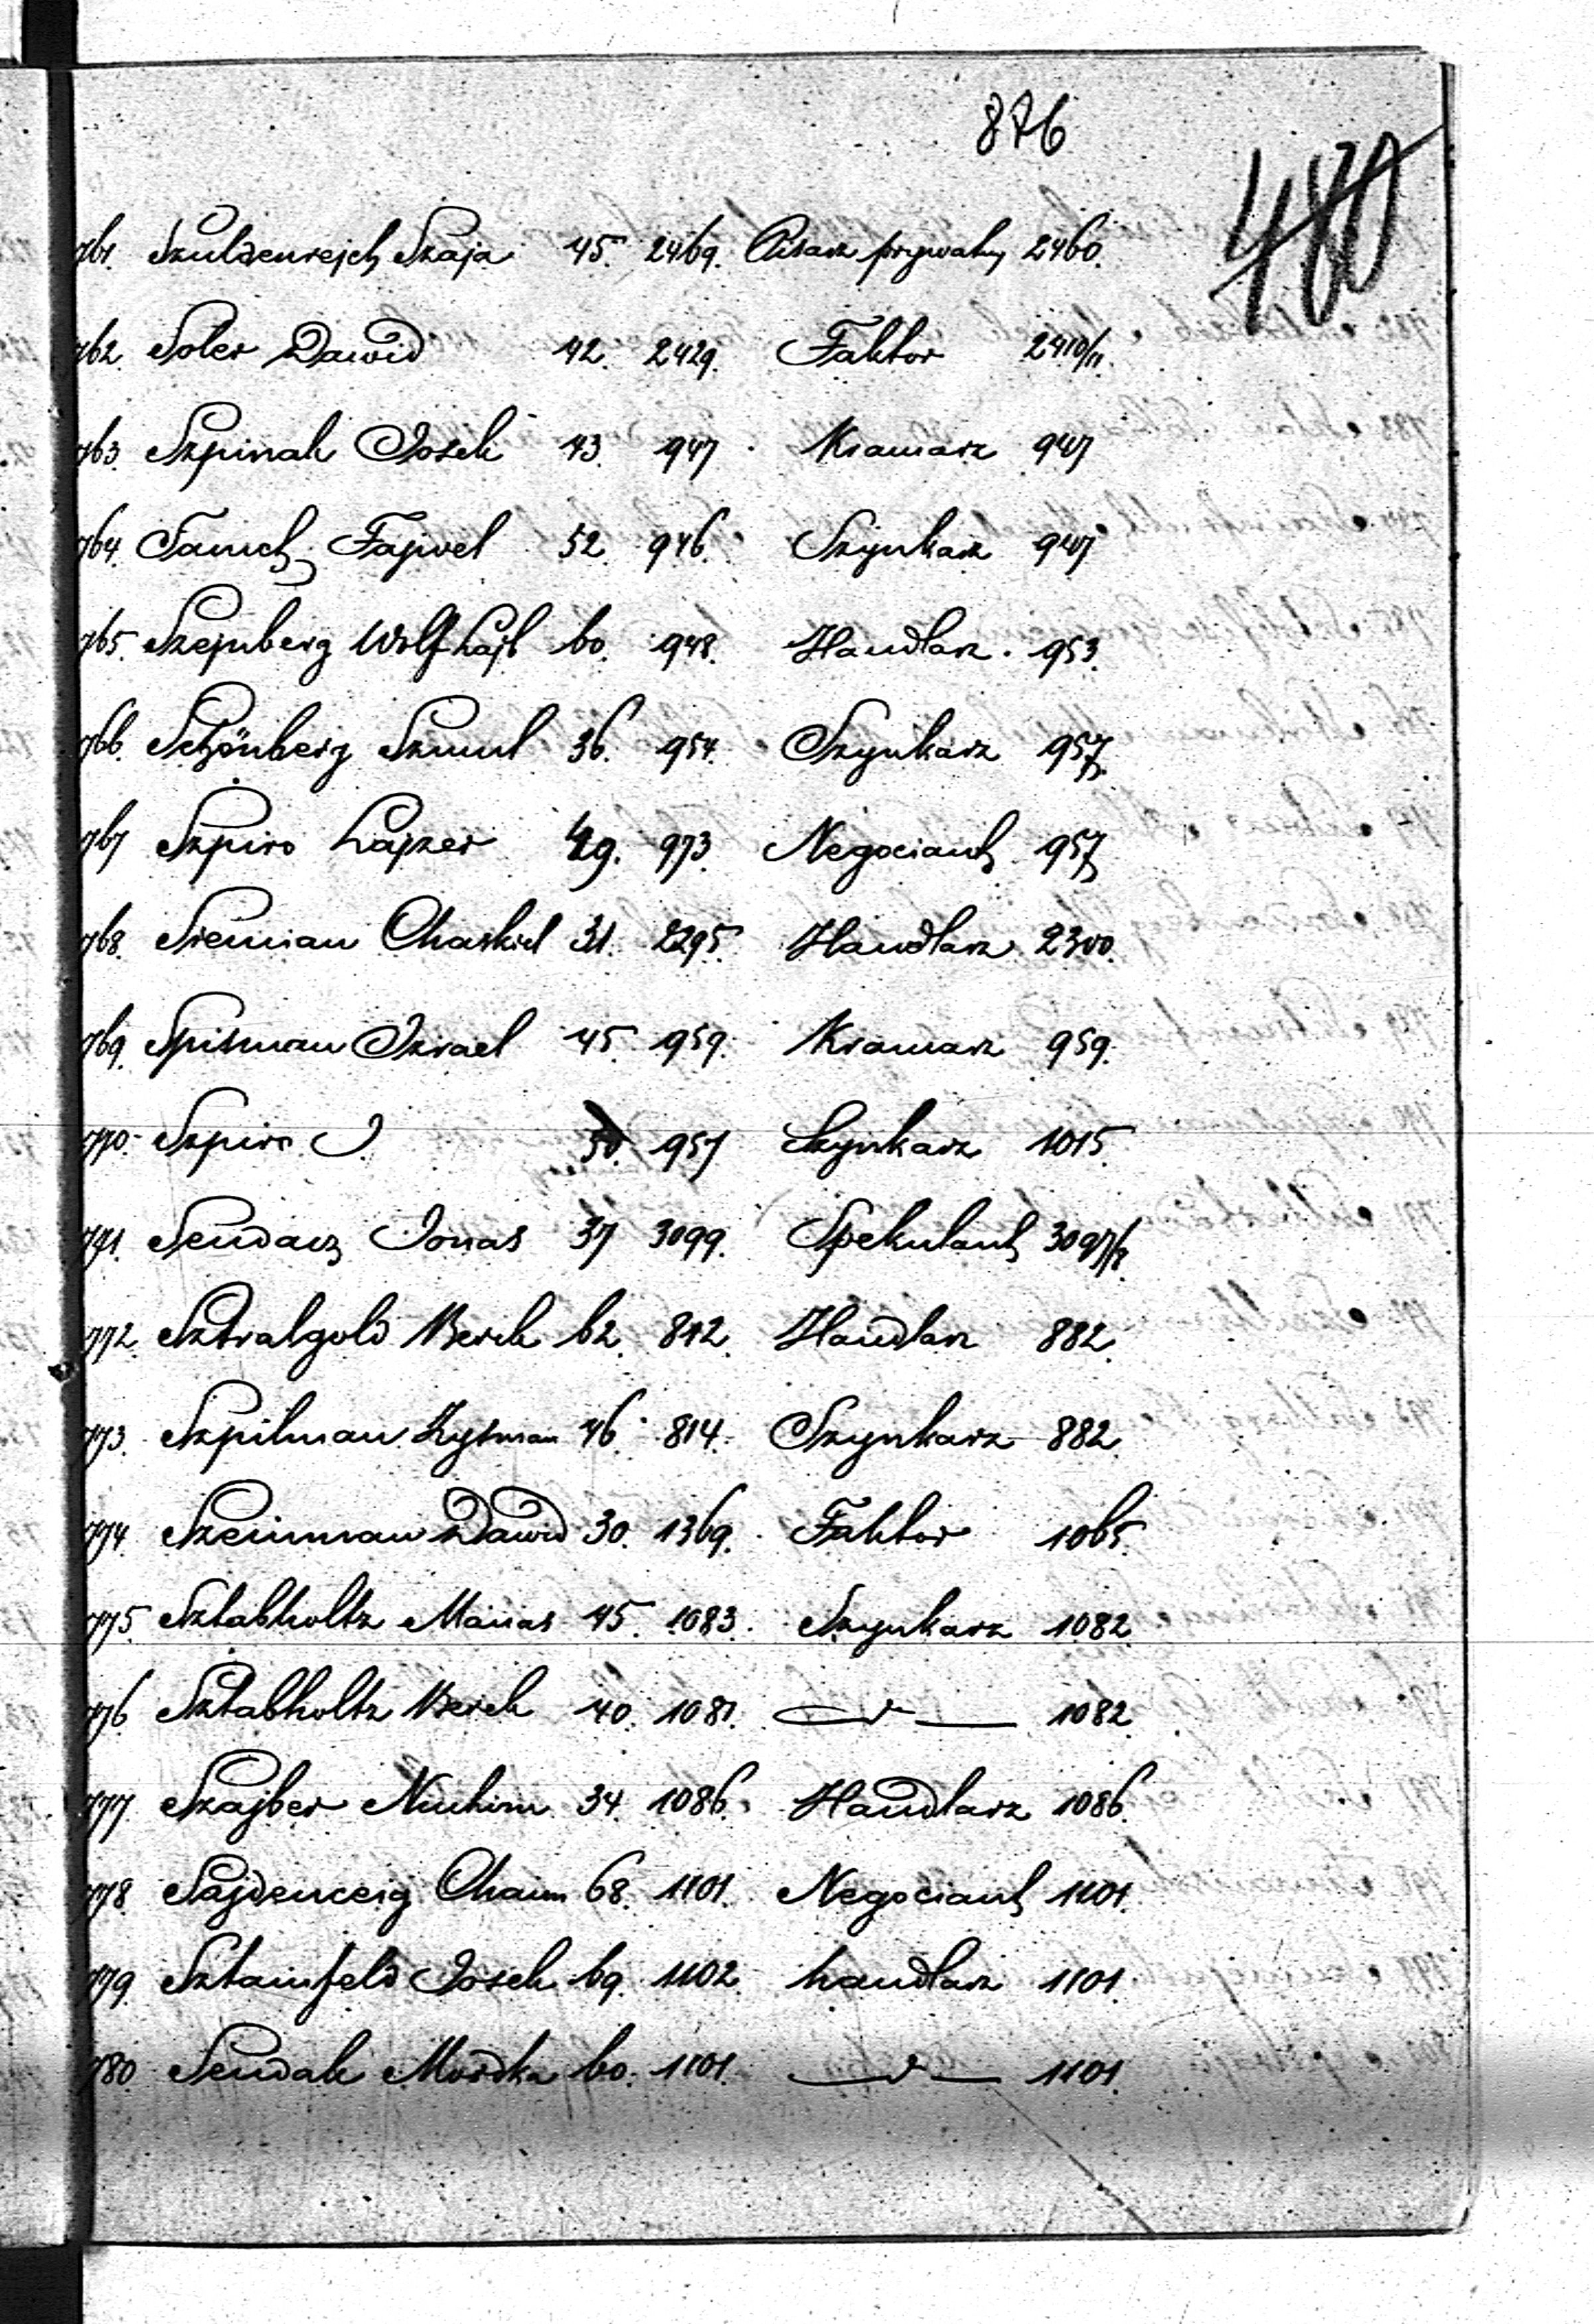 876
480
761. Szulzenrejch Szaja 45. 2469. Pisarz prywatny 2460.
762. Soler Dawid 42. 2429. Faktor 2410/11.
763. Szpinak Josek 43. 947. Kramarz 947
764. Fajwel 52. 946. Szynkarz 947
765. Szejnberg Wolf Lajb 60. 948. Handlarz. 953.
766. Schönberg Szmul 36. 954. Szynkarz 957.
767 Szpiro Lajzer 49. 973. Negociant 957
768. Sieman Chaskiel 31. 2295. Handlarz 2300.
769. Spisman Izrael 45. 959. Kramarz 959.
770. Szpiro J. 50. 957 Szynkarz 1015.
771. Sendacz Jonas 37 3099. Spekulant 3097/8.
772. Sztralgold Berek 62. 812. Handlarz 882.
773. Szpilman Zysman 46. 814. Szynkarz 882.
774. Szeinman Dawid 30. 1369. Faktor 1065.
775. Sztabholtz Manas 45. 1083. Szynkarz 1082.
776 Sztabholtz Berek 40. 1081. —v— 1082
777. Szajber Nuchim 34. 1086. Handlarz 1086.
778. Sajdenceig Chaim 68. 1101. Negociant 1101.
779. Sztainfeld Josek 69. 1102. handlarz 1101.
780. Sendak Mordka 60. 1101. —v— 1101.